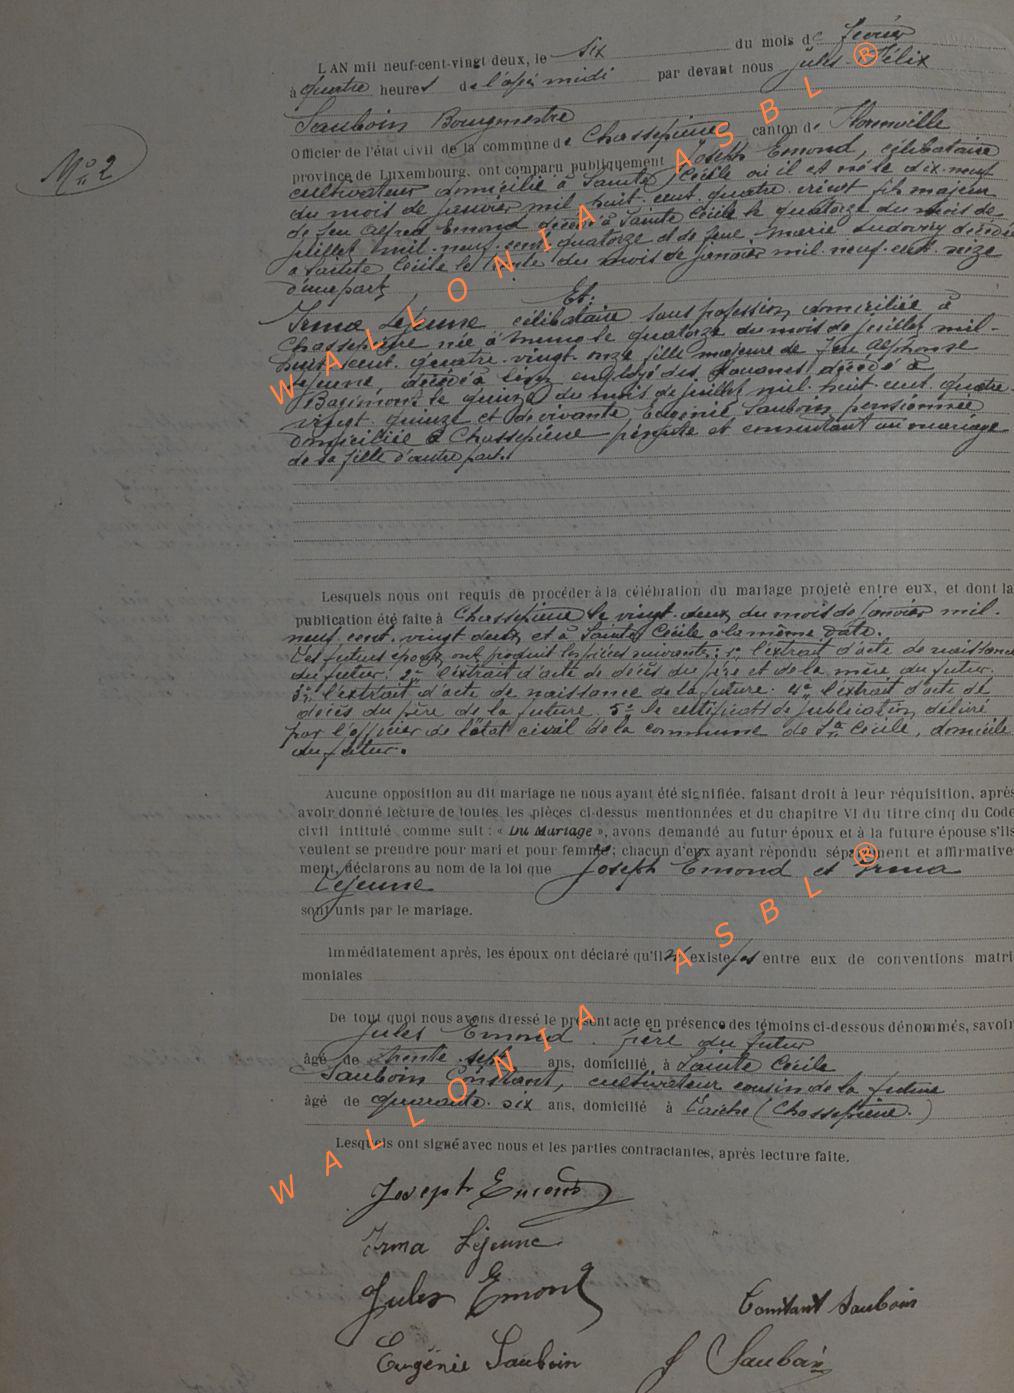 N° 2
L'AN mil neuf-cent-vingt deux, le six du mois de février
à quatre heures de l'après midi par devant nous Jules Félix
Sauboin Bourgmestre
Officier de l'état civil de la commune de Chassepierre canton de Florenville
province de Luxembourg, ont comparu publiquement Joseph Emond, célibataire
cultivateur domicilié à Sainte Cécile où il est né le dix-neuf
du mois de janvier mil huit-cent-quatre-vingt fils majeur
de feu Alfred Emond décédé à Sainte Cécile le quatorze du mois de
juillet mil-neuf-cent quatorze et de feue Marie décédée
à Sainte Cécile le trente du mois de janvier mil-neuf-cent-seize
d'une part,
Et:
Irma Lejeune célibataire sans profession domiciliée à
Chassepierre née à le quatorze du mois de juillet mil-
huit-cent-quatre-vingt-onze fille majeure de feu Alphonse
Lejeune, décédé employé des douanes décédé à
le quinze du mois de juillet mil-huit-cent-quatre-
vingt-quinze et de vivante Eugénie Sauboin pensionnée
domiciliée à Chassepierre présente et consentant au mariage
de sa fille d'autre part.
Lesquels nous ont requis de procéder à la célébration du mariage projeté entre eux, et dont la
publication été faite à Chassepierre le vingt-deux du mois de janvier mil-
neuf-cent-vingt deux et à Sainte Cécile à la même date.
Les futurs époux ont produit les pièces suivantes: 1° l'extrait d'acte de naissance
du futur. 2° l'extrait d'acte de décès du père et de la mère du futur.
3° l'extrait d'acte de naissance de la future. 4° l'extrait d'acte de
décès du père de la future. 5° le certificat de publication délivré
par l'officier de l'état civil de la commune de Ste Cécile, domicile
du futur.
Aucune opposition au dit mariage ne nous ayant été signifiée, faisant droit à leur réquisition, après
avoir donné lecture de toutes les pièces ci-dessus mentionnées et du chapitre VI du titre cinq du Code
civil intitulé comme suit : « Du Mariage », avons demandé au futur époux et à la future épouse s'ils
veulent se prendre pour mari et pour femme; chacun d'eux ayant répondu séparément et affirmative-
ment, déclarons au nom de la loi que Joseph Emond et Irma
Lejeune
sont unis par le mariage.
Immédiatement après, les époux ont déclaré qu'il n'existe pas entre eux de conventions matri-
moniales
De tout quoi nous avons dressé le présent acte en présence des témoins ci-dessous dénommés, savoir
Jules Emond frère du futur
âgé de trente-sept ans, domicilié à Sainte Cécile
Sauboin Constant, cultivateur cousin de la future
âgé de quarante-six ans, domicilié à Laiche (Chassepierre.)
Lesquels ont signé avec nous et les parties contractantes, après lecture faite.
Joseph Emond
Irma Lejeune
Jules Emond
Constant Sauboin
Eugénie Sauboin
J Sauboin
WALLONIA ASBL ®
WALLONIA ASBL ®